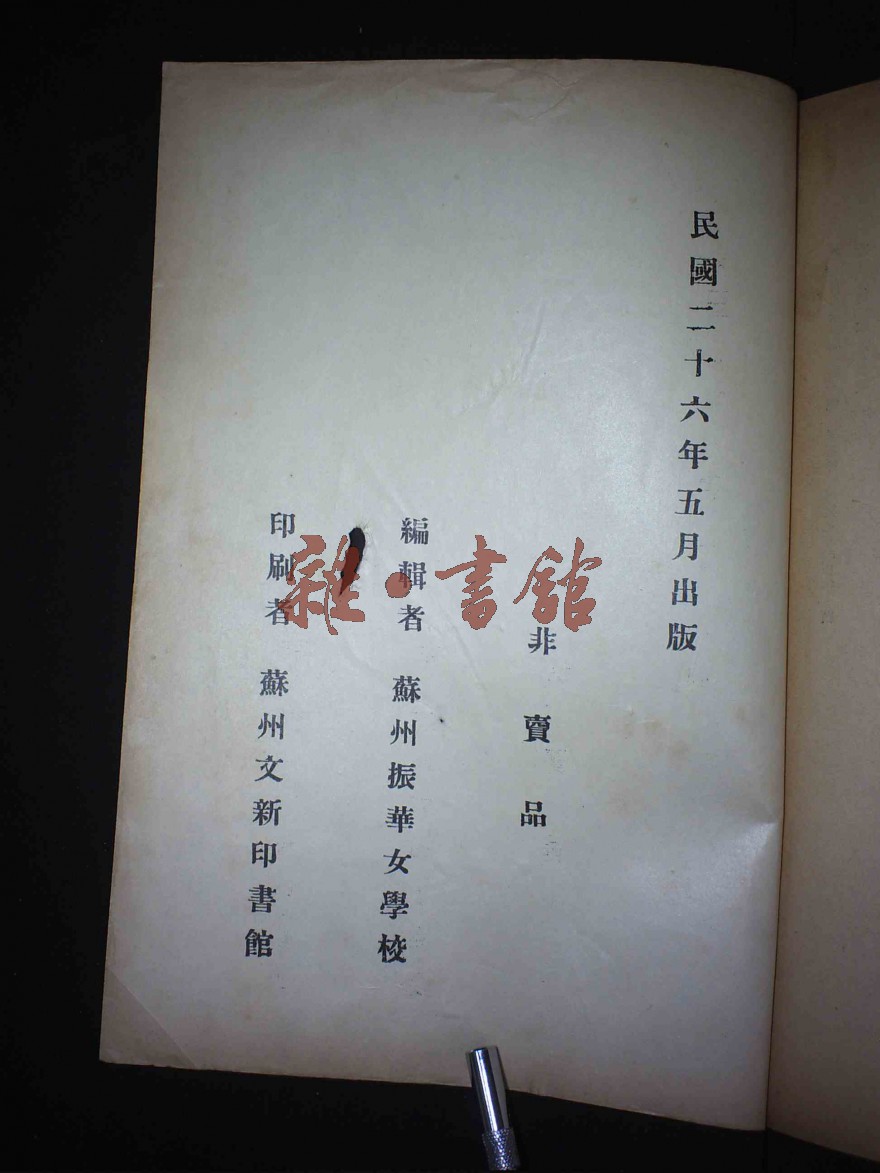 民國二十六年五月出版
非賣品
編輯者 蘇州振華女學校
印刷者 蘇州文新印書館
雜·書館